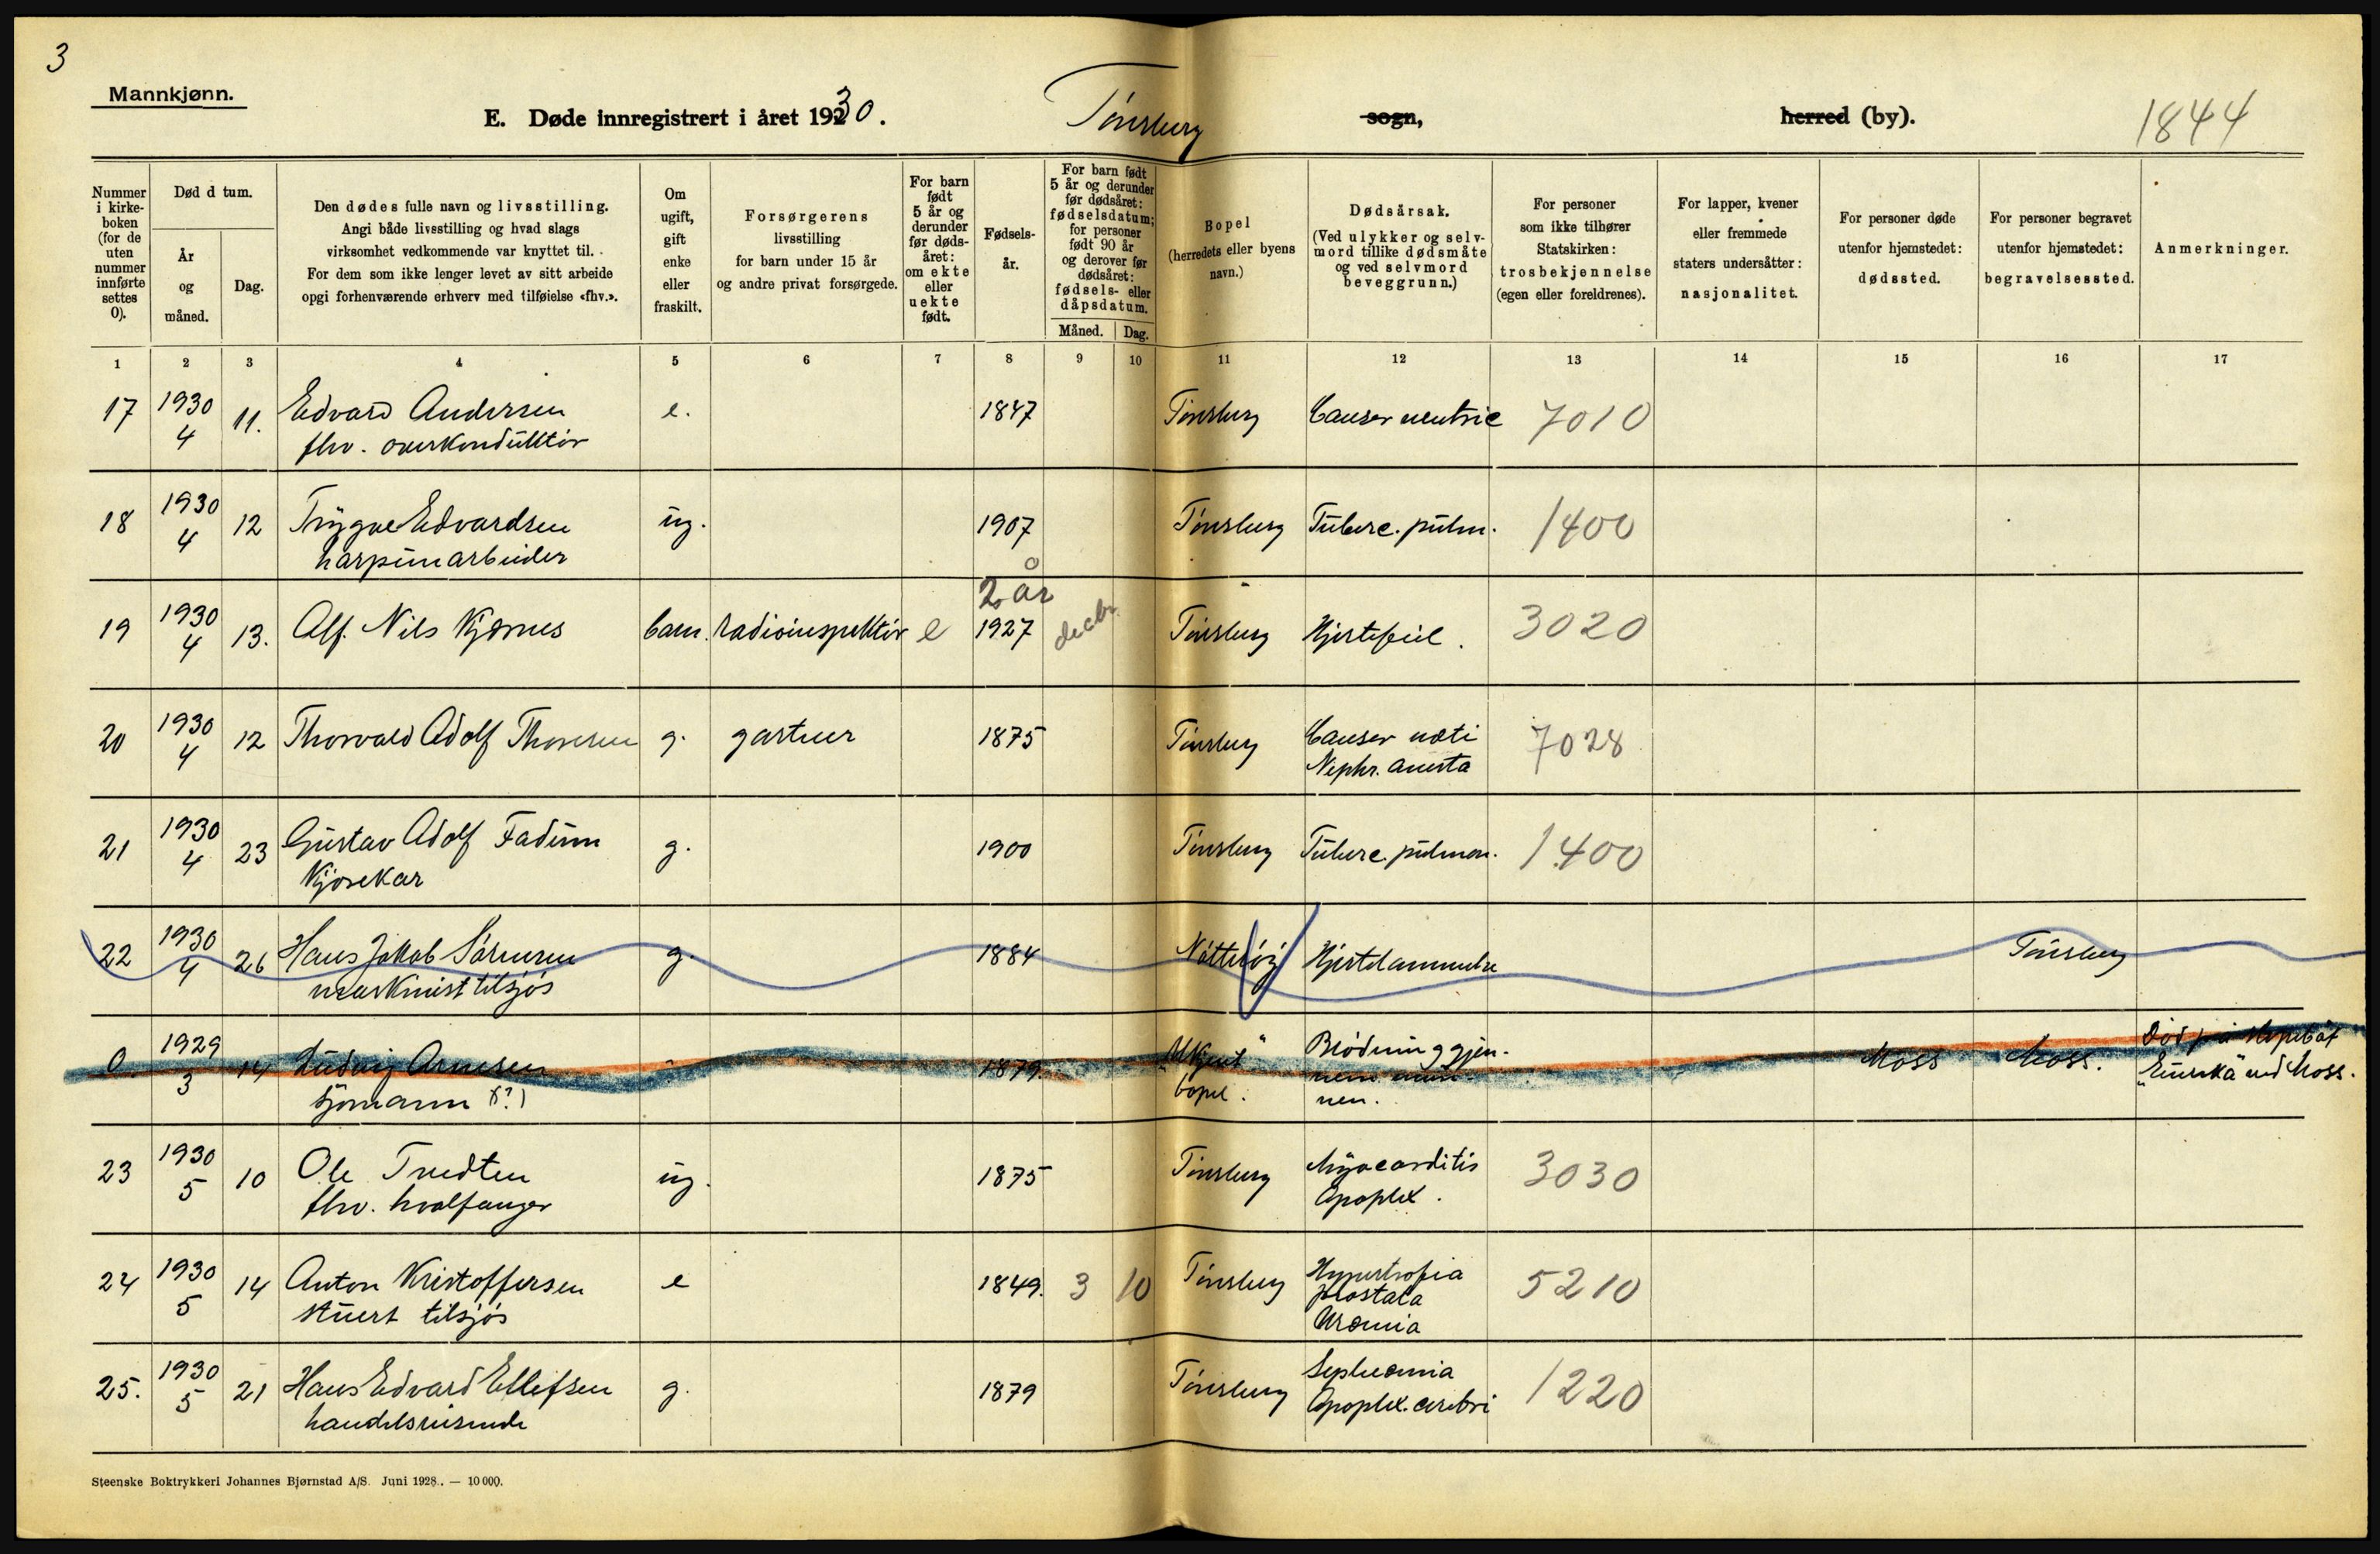 3
Mannkjønn.
E. Døde innregistrert i året 1930.
Tønsberg
sogn,
herred (by).
1844
Nummer i kirke-boken (for de uten nummer innførte settes 0).
Død d tum.
År og måned.
Dag.
Den dødes fulle navn og livsstilling.
Angi både livsstilling og hvad slags
virksomhet vedkommende var knyttet til.
For dem som ikke lenger levet av sitt arbeide
opgi forhenværende erhverv med tilføielse «fhv.».
Om ugift, gift enke eller fraskilt.
Forsørgerens
livsstilling
for barn under 15 år
og andre privat forsørgede.
For barn født 5 år og derunder før døds-året: om ekte eller uekte født.
Fødsels-år.
For barn født 5 år og derunder før dødsåret: fødselsdatum; for personer født 90 år og derover før dødsåret: fødsels- eller dåpsdatum.
Måned.
Dag.
Bopel
(herredets eller byens
navn.)
Dødsårsak.
(Ved ulykker og selv-
mord tillike dødsmåte
og ved selvmord
beveggrunn.)
For personer
som ikke tilhører
Statskirken:
trosbekjennelse
(egen eller foreldrenes).
For lapper, kvener
eller fremmede
staters undersåtter:
nasjonalitet.
For personer døde
utenfor hjemstedet:
dødssted.
For personer begravet
utenfor hjemstedet:
begravelsessted.
Anmerkninger.
1 2 3 4 5 6 7 8 9 10 11 12 13 14 15 16 17
17 1930 4 11. Edvard Andersen e. 1847 Tønsberg Cancer ventric 7010
fhv. overkonduktør
18 1930 4 12 Trygve Edvardsen ug. 1907 Tønsberg Tuberc. pulm. 1400
harpunarbeider
2 år
19 1930 4 13. Alf. Nils Kjærnes barn. radioinspektør e 1927 decbr Tønsberg Hjertefeil. 3020
20 1930 4 12 Thorvald Adolf Thoresen g. gartner 1875 Tønsberg Cancer 7028
Nephr.
21 1930 4 23 Gustav Adolf Fadum g. 1900 Tønsberg Tuberc. pulmon. 1400
Kjørekar
22 1930 4 26 Hans Jakob Sørensen g. 1884 Nøtterøy Hjertelammelse Tønsberg
maskinist tilsjøs
0. 1929 3 14 Ludvig Arnesen 1879. "Ukjent" bopel. Blødning gjen-
nem mun-
nen. Moss Moss. Død på slepebåt
"Eureka" ved Moss.
sjømann (?)
23 1930 5 10 Ole Tvedten ug. 1875 Tønsberg Myocarditis 3030
fhv. hvalfanger Apoplex.
24 1930 5 14 Anton Kristoffersen e 1849. 3 10 Tønsberg Hypertrofia 5210
stuert tilsjøs prostata
Uræmia
25. 1930 5 21 Hans Edvard Ellefsen g. 1879 Tønsberg 1220
handelsreisende Apoplex. cerebri
Steenske Boktrykkeri Johannes Bjørnstad A/S. Juni 1928. — 10 000.